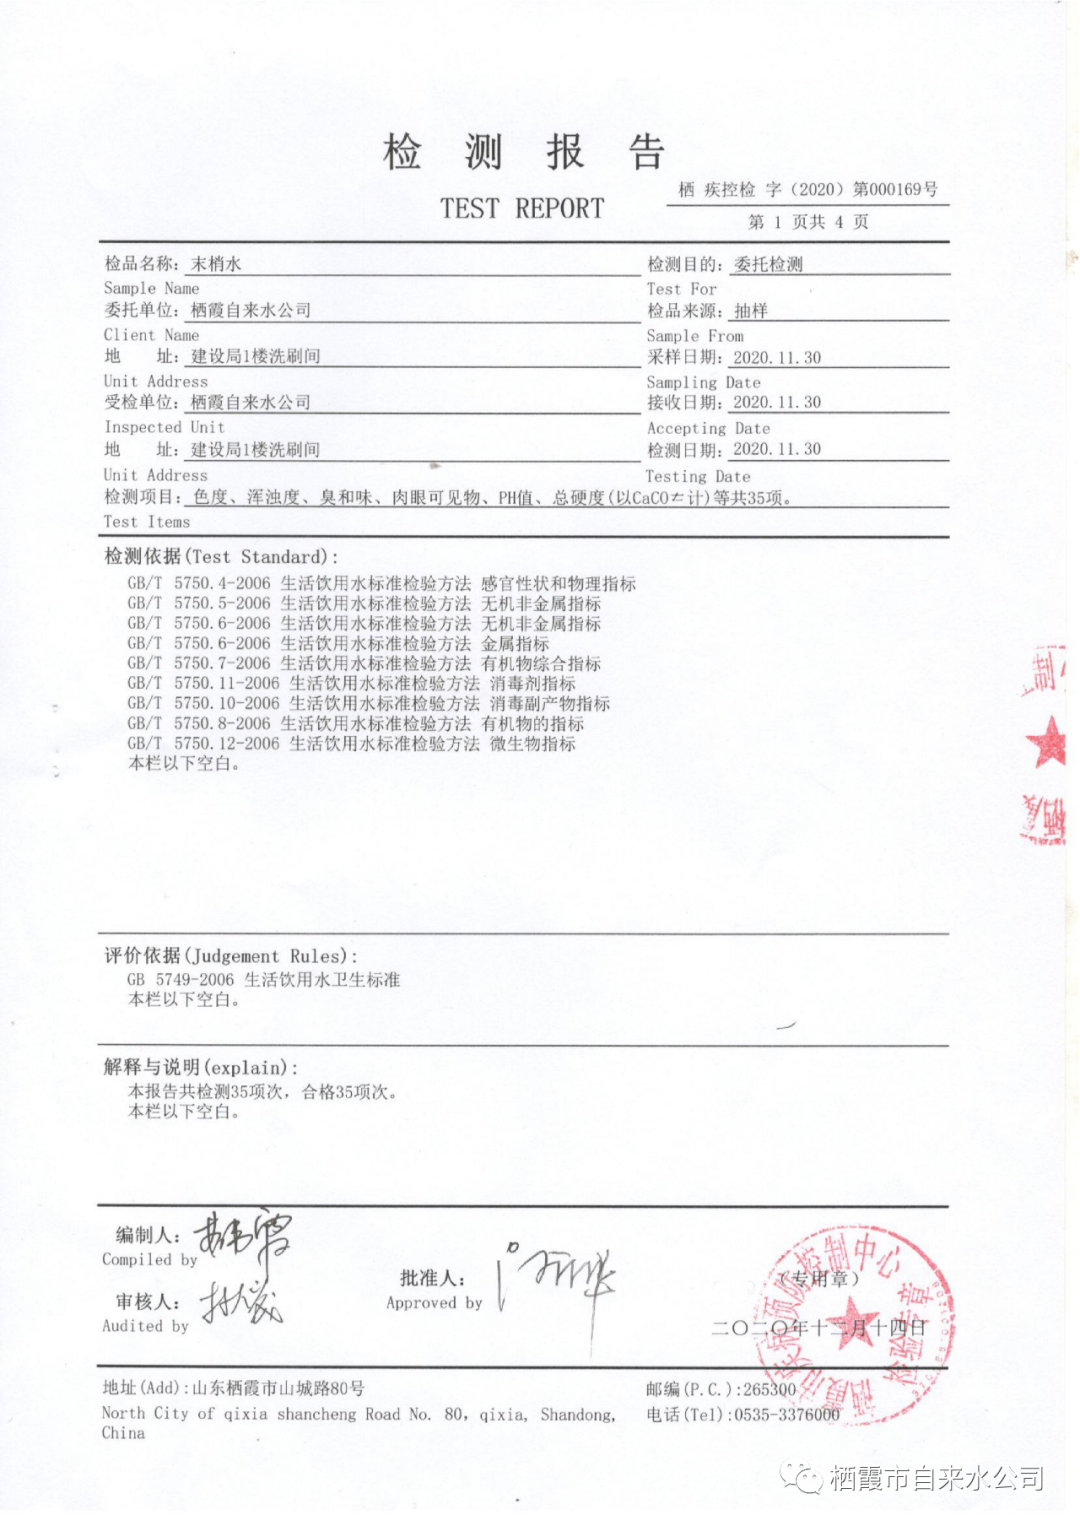 检 测 报 告
TEST REPORT
栖 疾控检 字（2020）第000169号
第 1 页共 4 页
检品名称: 末梢水
检测目的: 委托检测
Sample Name
Test For
委托单位: 栖霞自来水公司
检品来源: 抽样
Client Name
Sample From
地 址: 建设局1楼洗刷间
采样日期: 2020.11.30
Unit Address
Sampling Date
受检单位: 栖霞自来水公司
接收日期: 2020.11.30
Inspected Unit
Accepting Date
地 址: 建设局1楼洗刷间
检测日期: 2020.11.30
Unit Address
Testing Date
检测项目: 色度、浑浊度、臭和味、肉眼可见物、PH值、总硬度(以CaCO 计)等共35项。
Test Items
检测依据(Test Standard):
GB/T 5750.4-2006 生活饮用水标准检验方法 感官性状和物理指标
GB/T 5750.5-2006 生活饮用水标准检验方法 无机非金属指标
GB/T 5750.6-2006 生活饮用水标准检验方法 无机非金属指标
GB/T 5750.6-2006 生活饮用水标准检验方法 金属指标
GB/T 5750.7-2006 生活饮用水标准检验方法 有机物综合指标
GB/T 5750.11-2006 生活饮用水标准检验方法 消毒剂指标
GB/T 5750.10-2006 生活饮用水标准检验方法 消毒副产物指标
GB/T 5750.8-2006 生活饮用水标准检验方法 有机物的指标
GB/T 5750.12-2006 生活饮用水标准检验方法 微生物指标
本栏以下空白。
评价依据(Judgement Rules):
GB 5749-2006 生活饮用水卫生标准
本栏以下空白。
解释与说明(explain):
本报告共检测35项次，合格35项次。
本栏以下空白。
编制人:
Compiled by
批准人:
Approved by
审核人:
Audited by
（专用章）
二〇二〇年十二月十四日
地址(Add):山东栖霞市山城路80号
邮编(P.C.):265300
North City of qixia shancheng Road No. 80, qixia, Shandong,
China
电话(Tel):0535-3376000
栖霞市自来水公司